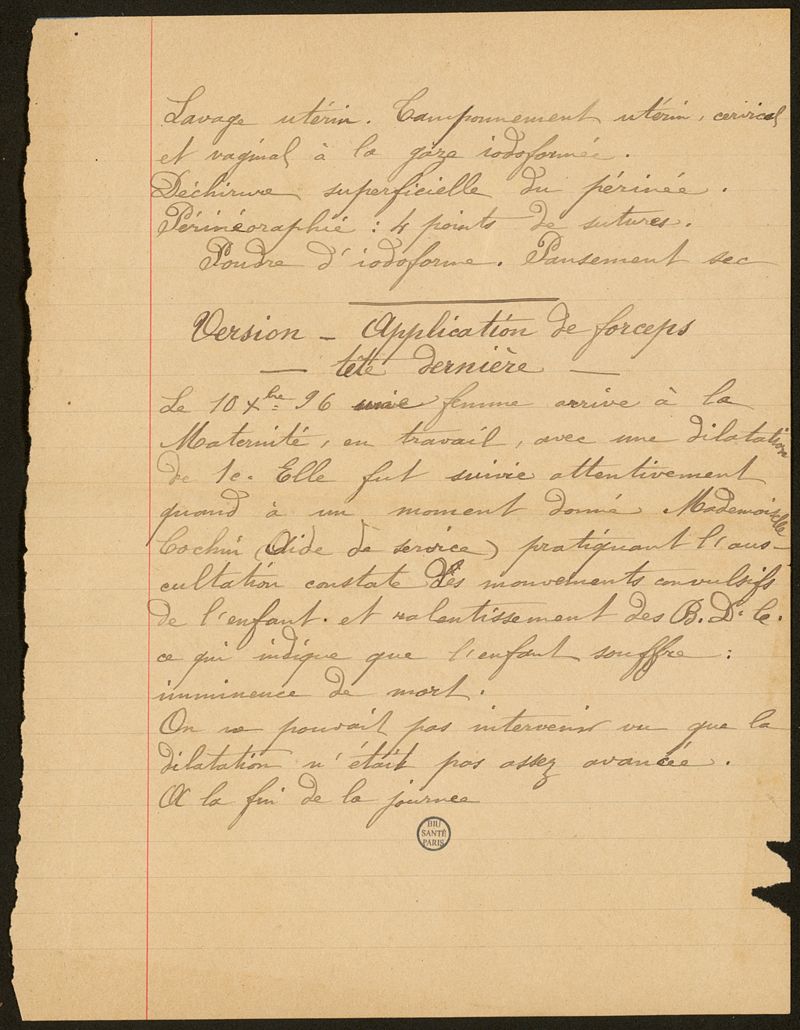 Lavage utérin. Tamponnement utérin, cervical
et vaginal à la gaze iodoformée.
Déchirure superficielle du périnée.
Périnéoraphie : 4 points de sutures.
Poudre d'iodoforme. Pansement sec
Version - Application de forceps
— tête dernière —
Le 10 Xbre 96 une femme arrive à la
Maternité, en travail, avec une dilatation
de 1c. Elle fut suivie attentivement
quand à un moment donné Mademoiselle
Cochin (Aide de service) pratiquant l'aus-
cultation constate des mouvements convulsifs
de l'enfant. et ralentissement des B. D. C.
ce qui indique que l'enfant souffre :
imminence de mort.
On ne pouvait pas intervenir vu que la
dilatation n'était pas assez avancée.
A la fin de la journée
BIU
SANTÉ
PARIS